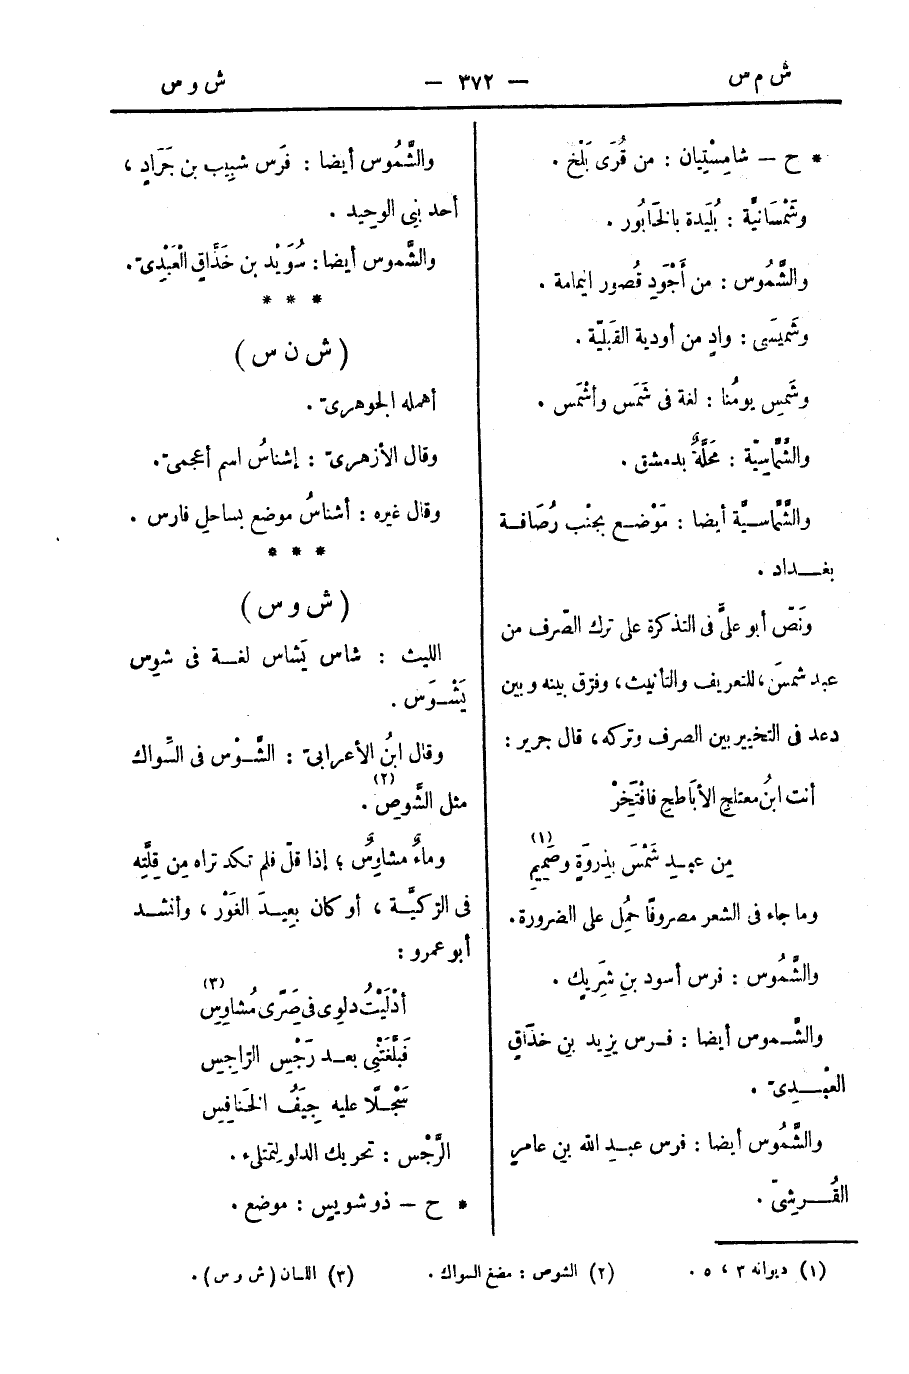 ش م س — ٣٧٢ — ش و س
* ح — شامِسْتِيان : من قُرَى بَلْخ .
وشَمْسَانيَّة : بُلَيدة بالخَابُور .
والشَّمُوس : من أَجْوَدِ قُصور اليمامة .
وشَمِيسَى : وادٍ من أودية القَبَليّة .
وشَمِس يومُنا : لغة فى شَمَس وأشْمَس .
والشُّمَّاسِيّة : مَحَلَّةٌ بدمشق .
والشَّمَّاسـيَّة أيضا : مَوْضـع بجنْب رُصَافـة
بغـداد .
ونَصّ أبو علىّ فى التذكرة على ترك الصّرف من
عبد شمسَ ، للتعريف والتأنيث ، وفرّق بينه وبين
دعد فى التخيير بين الصرف وتركه ، قال جرير :
أنت ابنُ معتلجِ الأبَاطحِ فافْتَخِرْ
مِن عبـدِ شَمْسَ بِذِروَةٍ وصَمِيمِ (١)
وما جاء فى الشعر مصروفًا حُمِل على الضرورة .
والشَّمُوس : فرس أسود بنِ شَرِيك .
والشَّـموس أيضا : فـرس يزيد بن خذَّاقٍ
العَبْـدِىّ .
والشَّمُوس أيضا : فرس عبـدِ الله بنِ عامرٍ
القُـرشِىّ .
والشَّمُوس أيضا : فَرَس شبيب بن جَرَادٍ ،
أحد بنِى الوحِيد .
والشَّموس أيضا : سُوَيْد بن خَذَّاقٍ العَبْدِىّ .
* * *
( ش ن س )
أهمله الجوهرىّ .
وقال الأزهرىّ : إشناسُ اسم أعجمىّ .
وقال غيره : أشناسُ موضع بساحلِ فارس .
* * *
( ش و س )
الليث : شاس يَشاس لغـة فى شوِس
يَشْـوَس .
وقال ابنُ الأعرابىّ : الشَّـوْس فى السِّواك
مثل الشَّوص (٢) .
وماءٌ مشاوِسٌ ؛ إذا قلّ فلم تكد تراه مِن قِلَّتِه
فى الرَّكيَّـة ، أو كان بعِيـدَ الغَوْر ، وأنشـد
أبو عمرو :
أدْلَيْتُ دلوِى فى صَرًى مُشاوِسِ (٣)
فَبلَّغَتْنِى بعـد رَجْسِ الرّاجِسِ
سَجْـلًا عليه جِيَفُ الخَنافِسِ
الرَّجْس : تحريك الدلو لِتمتلىء .
* ح — ذو شويس : موضع .
(١) ديوانه ٣ ، ٥ .
(٢) الشوص : مضغ السواك .
(٣) اللسان (ش و س) .